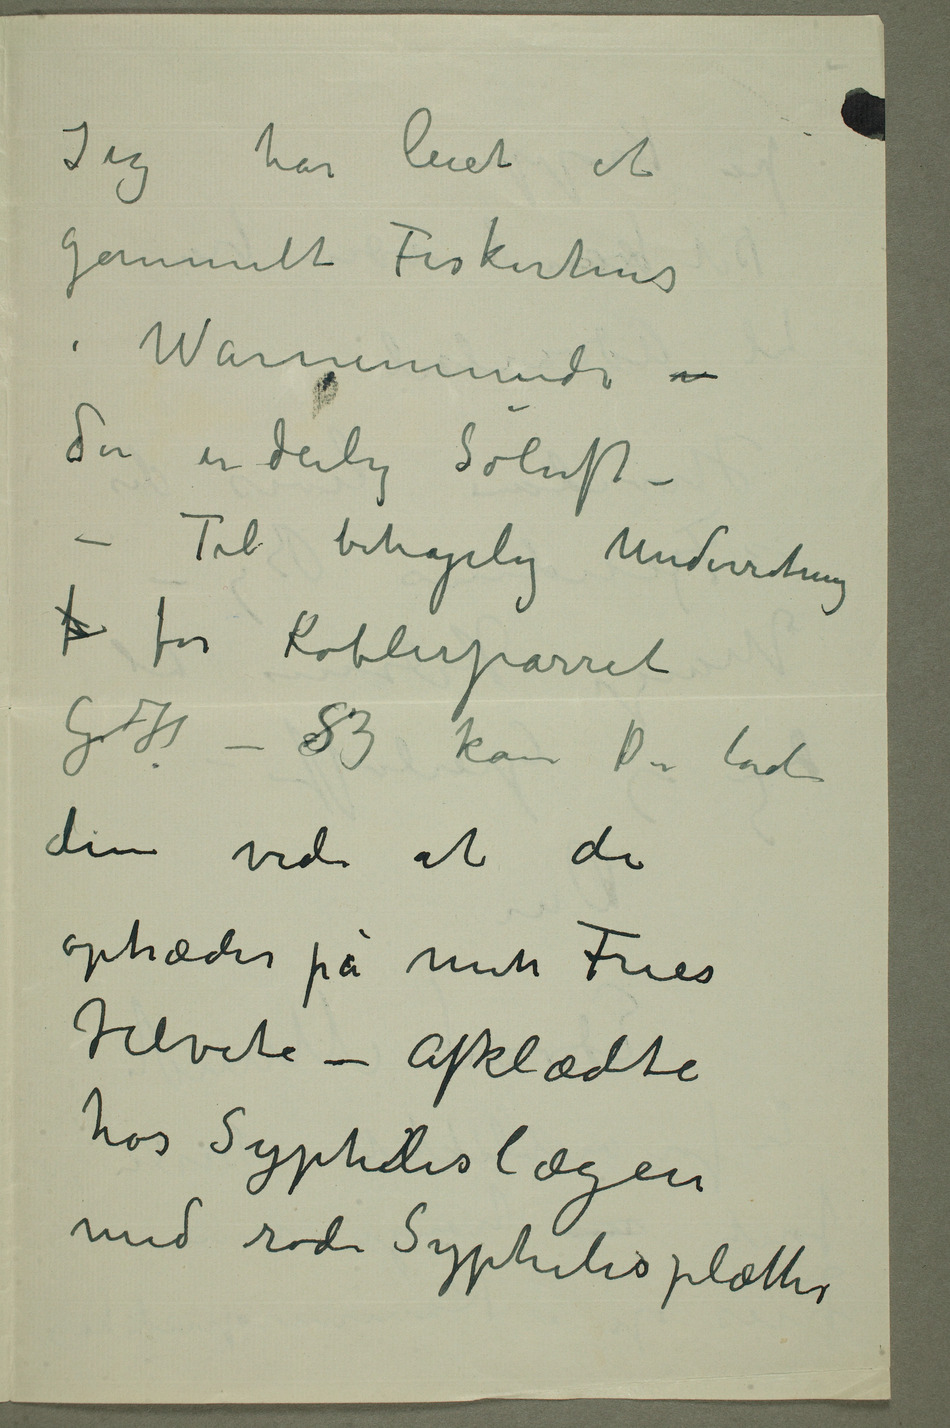 Jeg har leiet et
gammelt Fiskerhus
i Warnemünde –
Der er deilig Søluft –
– Til behagelig Underretning
for Koblerparret
G. H. – S3 kan Du lade
dem vide at de
optræder på mit Fries
Helvete – Afklædte
hos Syphilislægen
med røde Syphilisplætter